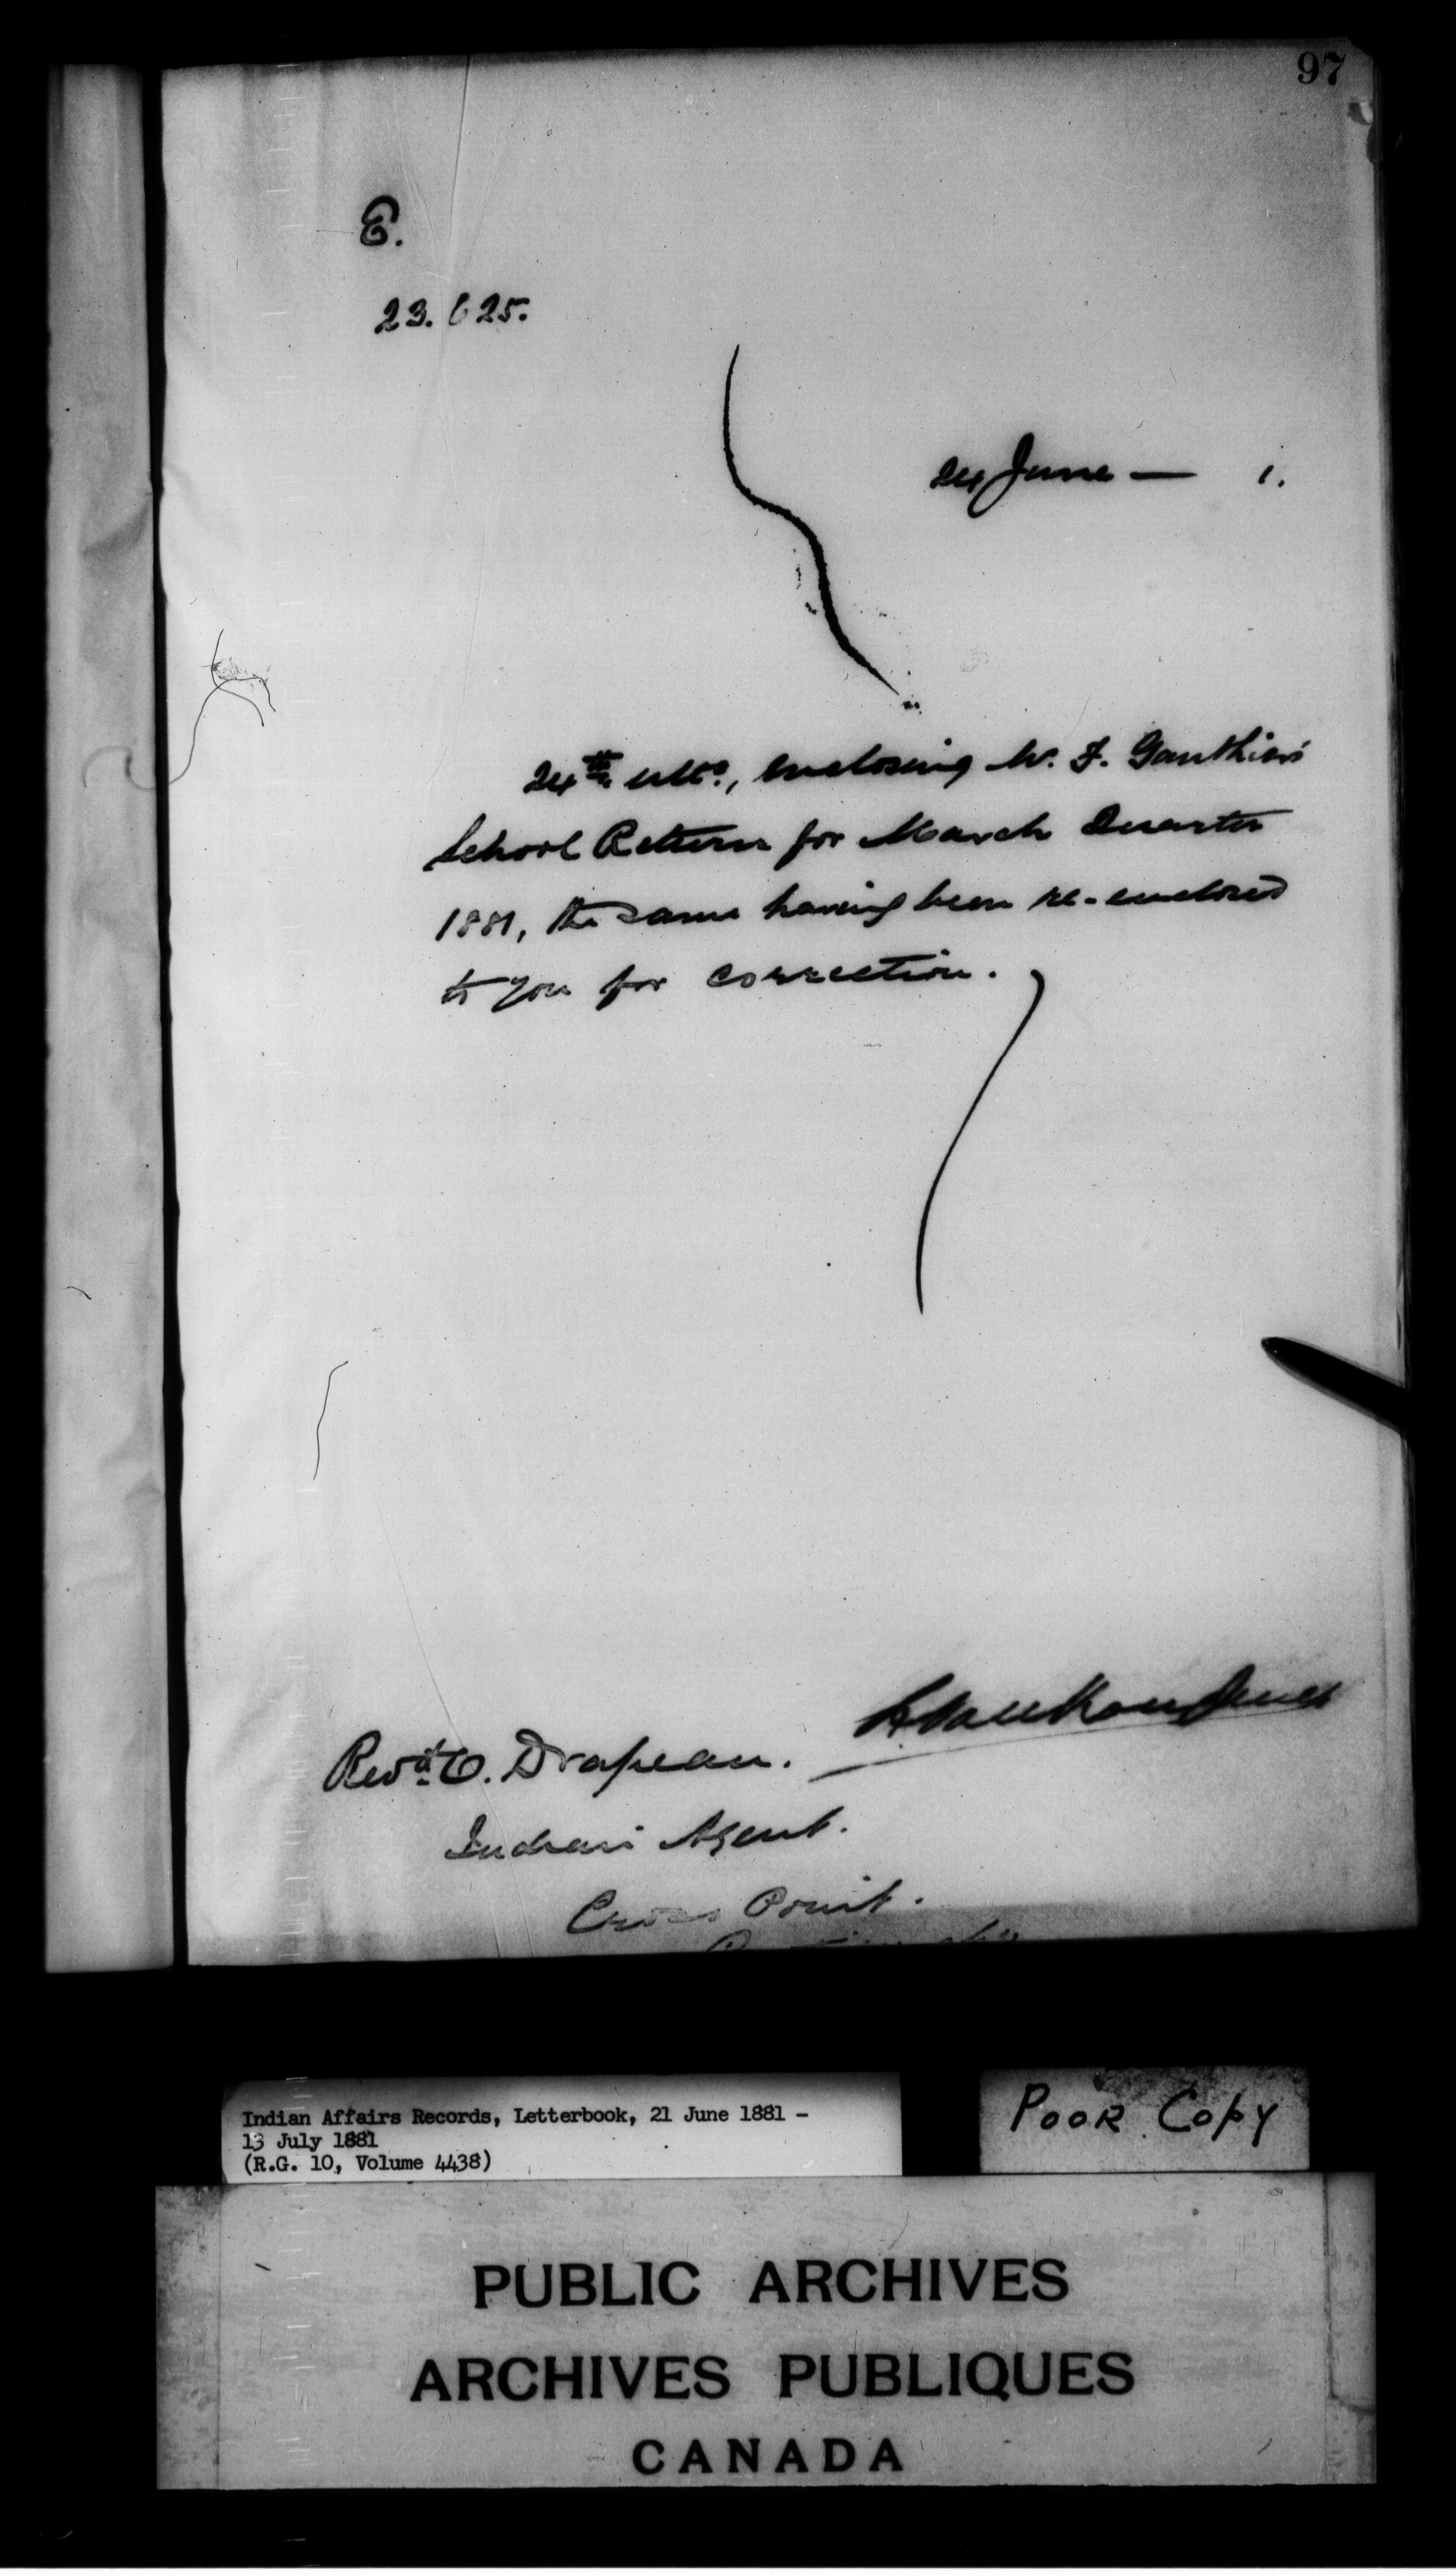 97
E.
23.625.
24 June — 1.
24th ulto., enclosing W. F. Gauthier's
School Return for March Quarter
1881, the same having been re-enclosed
to you for correction.
Revd. O. Drapeau.
Indian Agent.
Cross Point.
Indian Affairs Records, Letterbook, 21 June 1881 -
13 July 1881
(R.G. 10, Volume 4438)
POOR Copy
PUBLIC ARCHIVES
ARCHIVES PUBLIQUES
CANADA